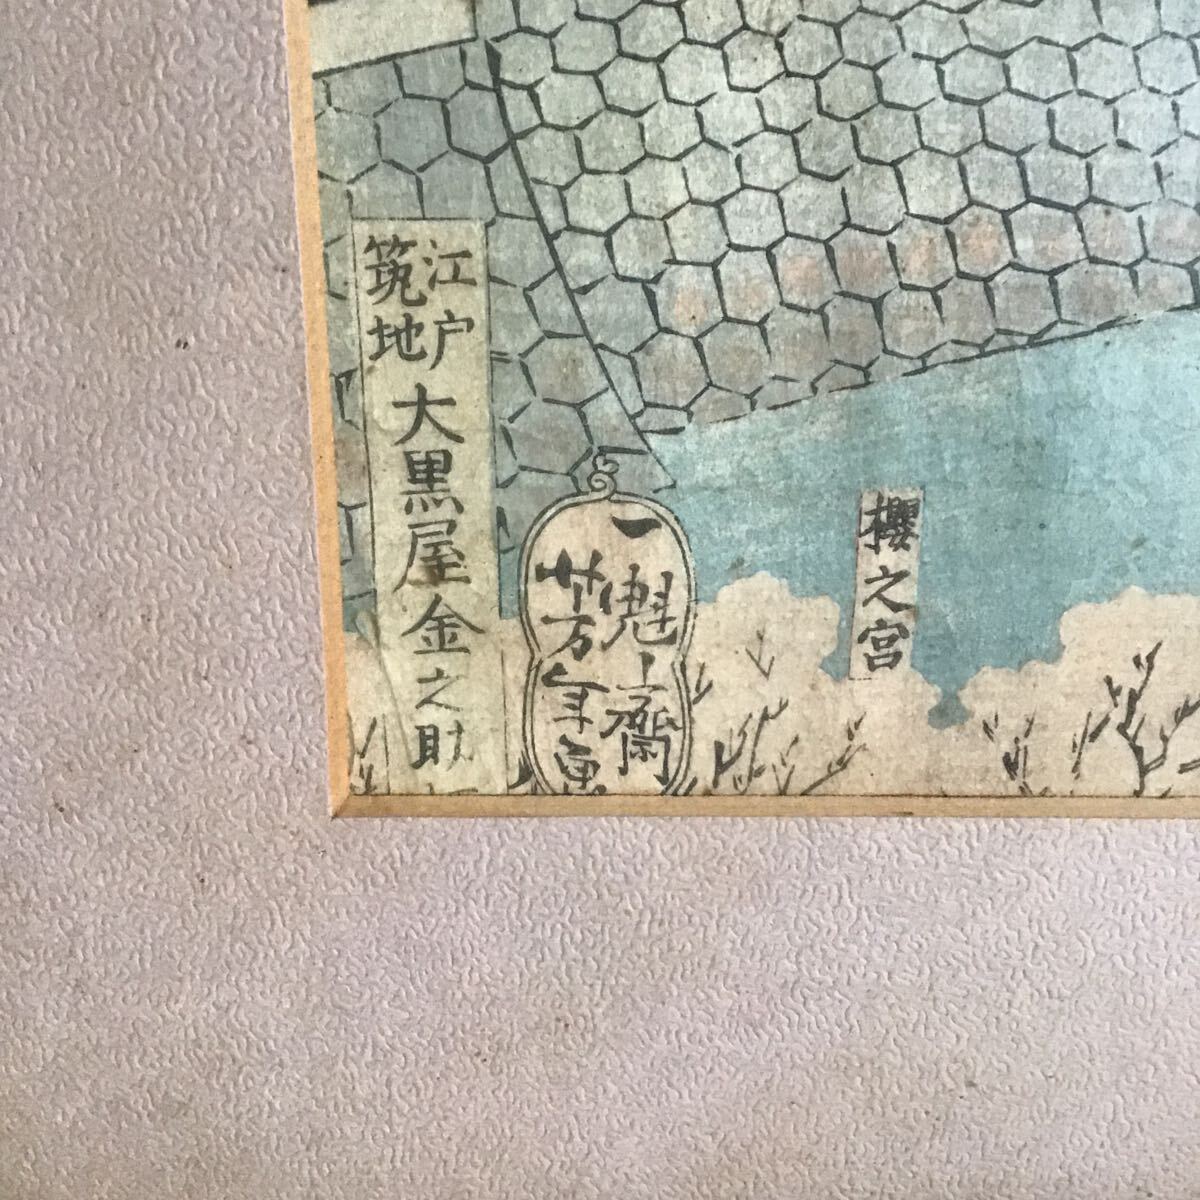 櫻之宮
一魁斎
芳年画
江戸
筑地
大黒屋金之助